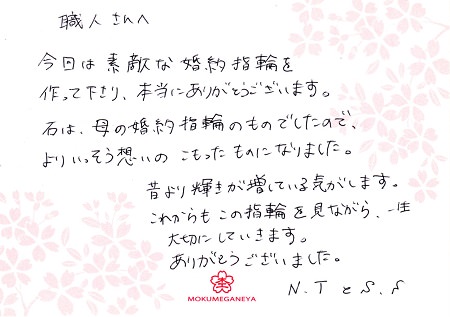 職人さんへ
今回は素敵な婚約指輪を
作って下さり、本当にありがとうございます。
石は、母の婚約指輪のものでしたので、
よりいっそう想いのこもったものになりました。
昔より輝きが増している気がします。
これからもこの指輪を見ながら、一生
大切にしていきます。
ありがとうございました。
N.TとS.S
杢
MOKUMEGANEYA